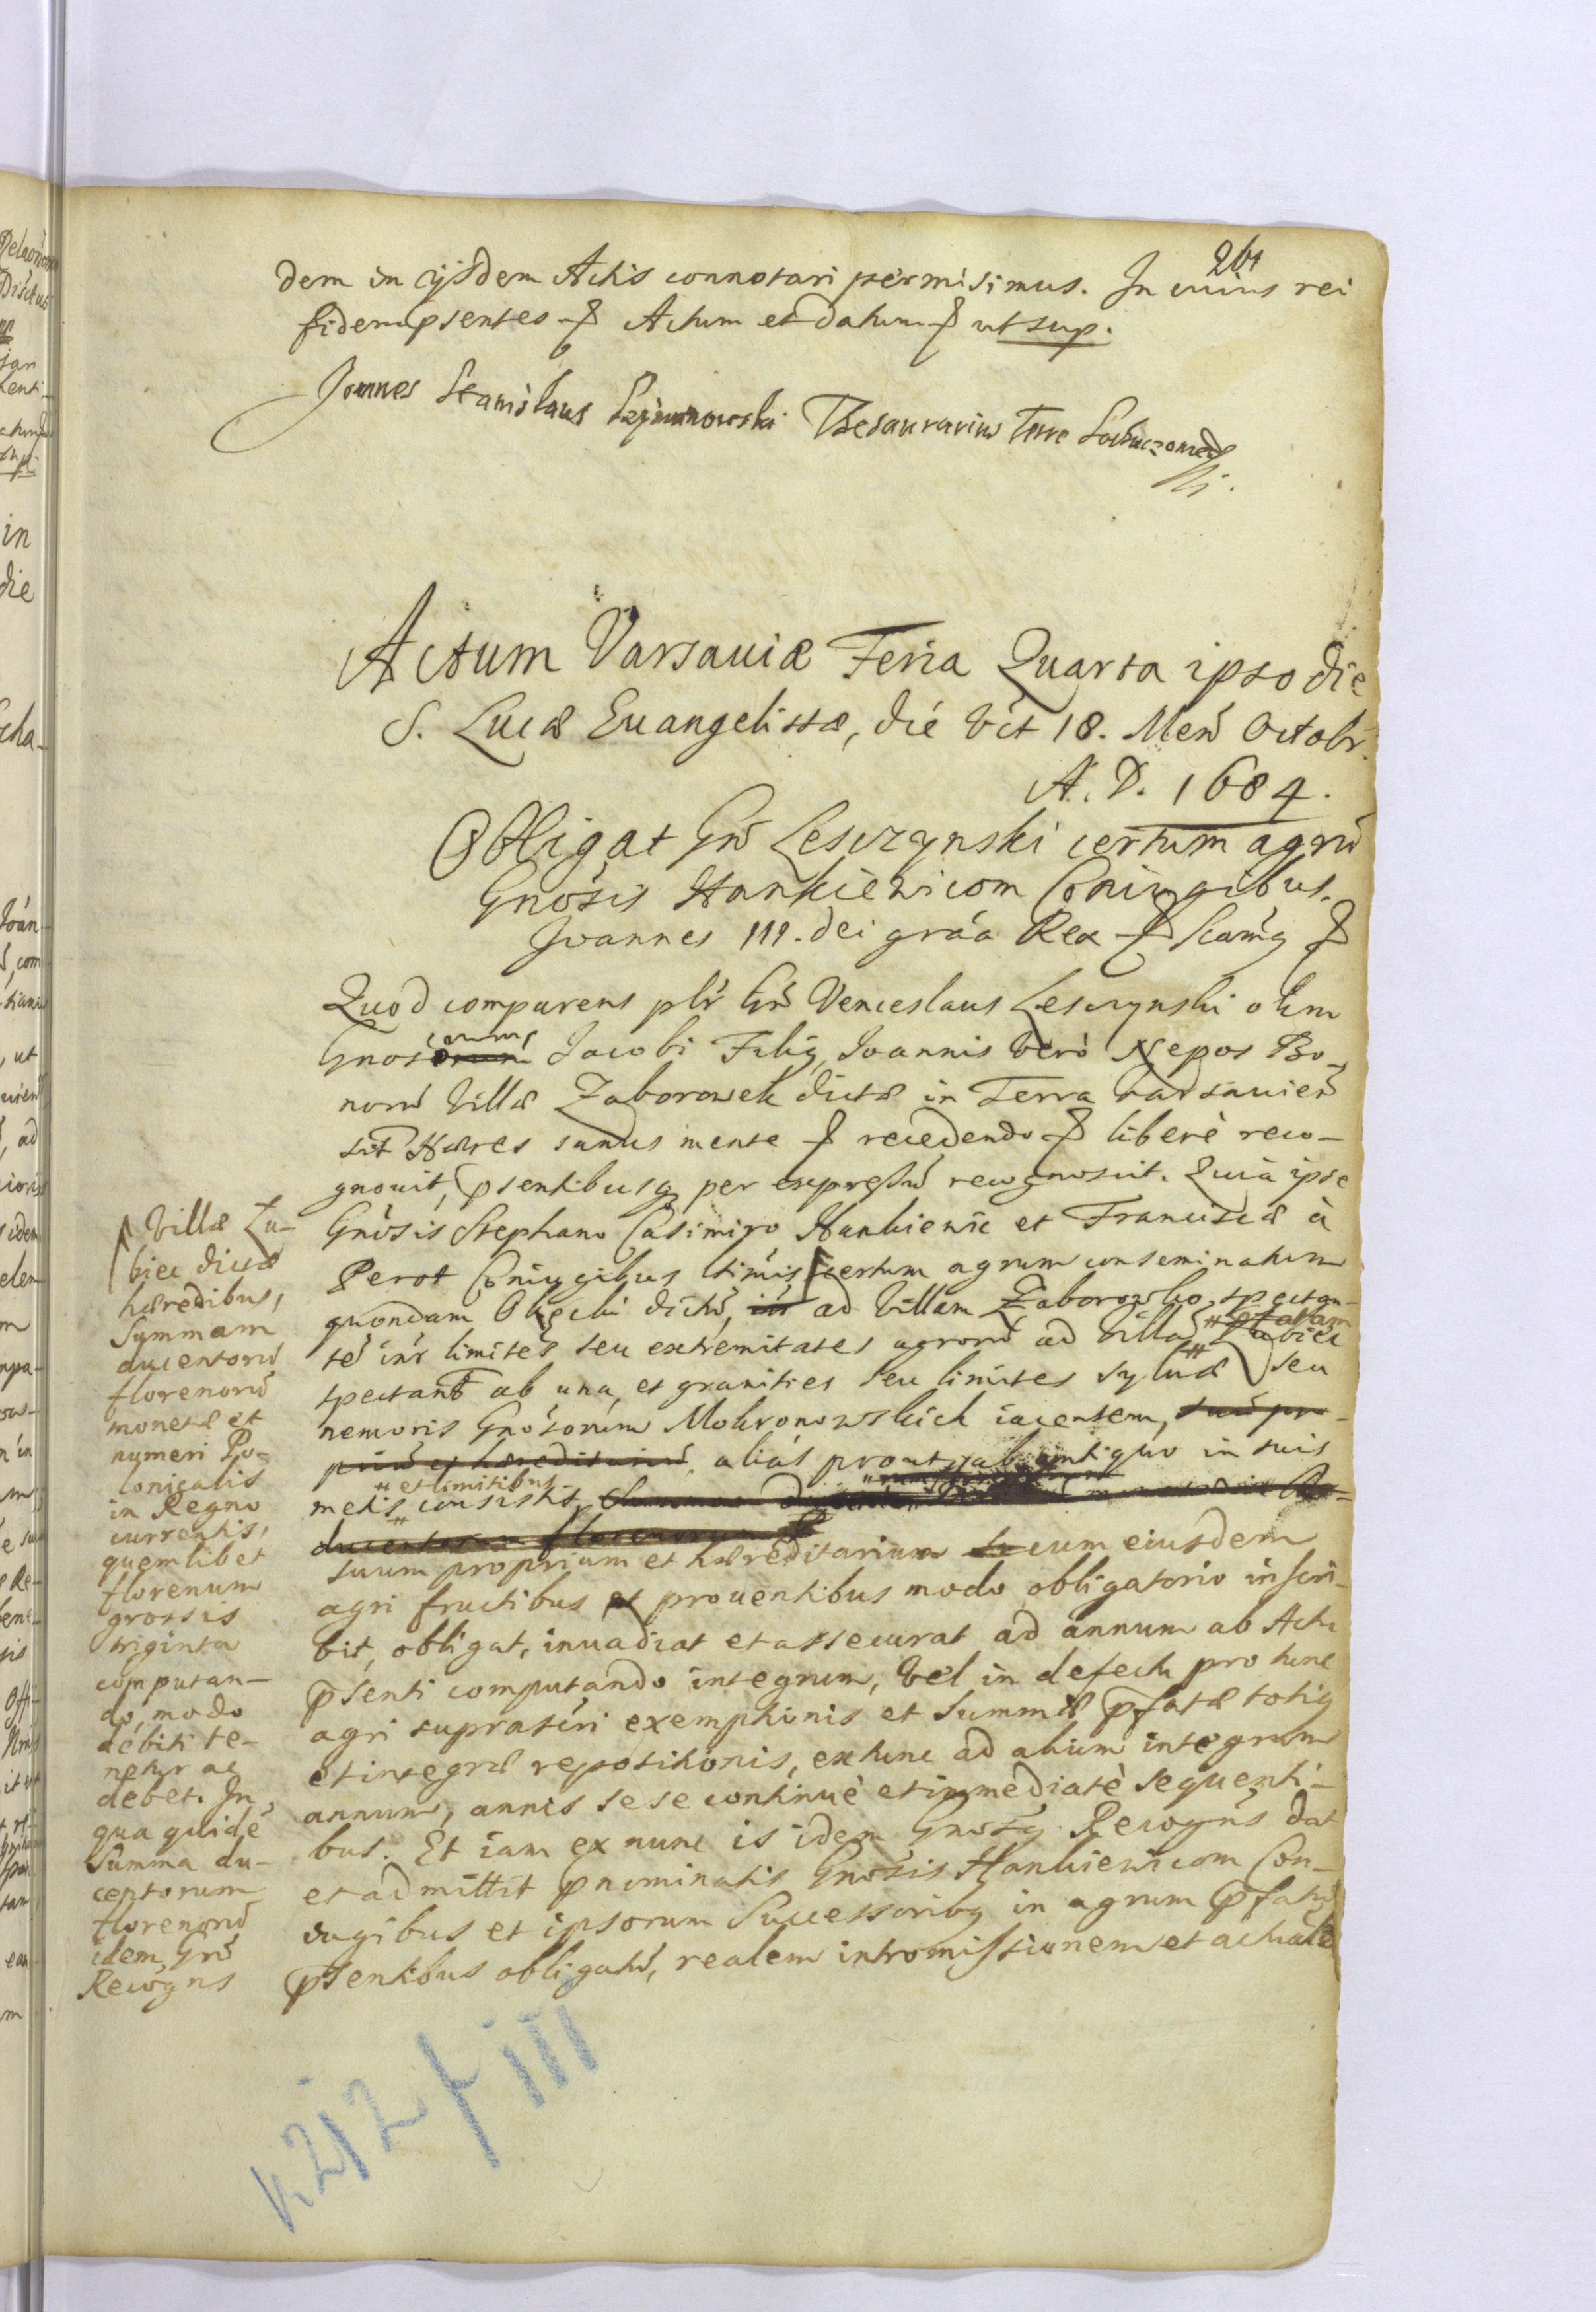 261
dem in eijsdem Actis connotari permisimus. In cuius rei
fidem psentes Actum et datum ut sup.
Joannes Stanislaus Szymanowski Thesaurarius Terre Sochaczovien
Actum Varsauiæ Feria Quarta ipso die
S. Lucæ Euangelistæ, die v̓ct 18. Men̄ Octobr.
A. D. 1684.
Obligat Gn̄s Lesczynski certum agrū
Gnosis Hankiewicom Coniugibus.
Joannes III. dei gr̄a Rex
Quod comparens pl̓r Gn̄s Venceslaus Lesczynski olim
Gnosi Jacobi Filiq, Joannis verò Nepos Bo-
norū Villæ Zaborowek dictæ in Terra Varsauien̄
sit Hæres sanus mente recedendo liberè reco-
gnouit, psentibusq per expressū recognoscit. Quia ipse
Gnósis Stephano Casimiro Hankiewic et Franciscæ à
Perot Coniugibus ltimis certum agrum conseminatum
quondam dictū, ad Villam Zaborowko spectan-
tē int̓r limites seu extremitates agrorū ad Villā Zubiec
spectant̄ ab una, et granities seu limites syluæ seu
nemoris Gnósorum Mokronowskich iacentem, suū pr-
priū et hæreditariū, aliás prout ab antiquo in suis
metis " et limitibus consistit,
ducentorum florenorum
suum proprium et hæreditarium cum eiusdem
agri fructibus et prouentibus modo obligatorio inscri-
bit, obligat, inuadiat et assecurat ad annum ab Actu
psenti computando integrum, vel in defectu pro tunc
agri suprascri exemptionis et summæ pfatæ totiq
et integræ repositionis, extunc ad alium integrum
annum, annis sese continuè et immediatè sequenti-
bus. Et iam ex nunc is idem Gnosq Recogns dat
et admittit pnominatis Gnosis Hankiewicom Con-
iugibus et ipsorum Successoribq in agrum pfatū
psentibus obligatū, realem intromissionem et actualē
Villæ Zu-
biec dictæ
hæredibus,
Summam
ducentorū
florenorū
monetæ et
numeri Po-
lonicalis
in Regno
currentis,
quemlibet
florenum
grossis
triginta
computan-
do, modo
debiti te-
netur ac
debet. In
qua quidē
Summa du-
centorum
florenorū
idem Gn̄s
Recogns
k 212 f III